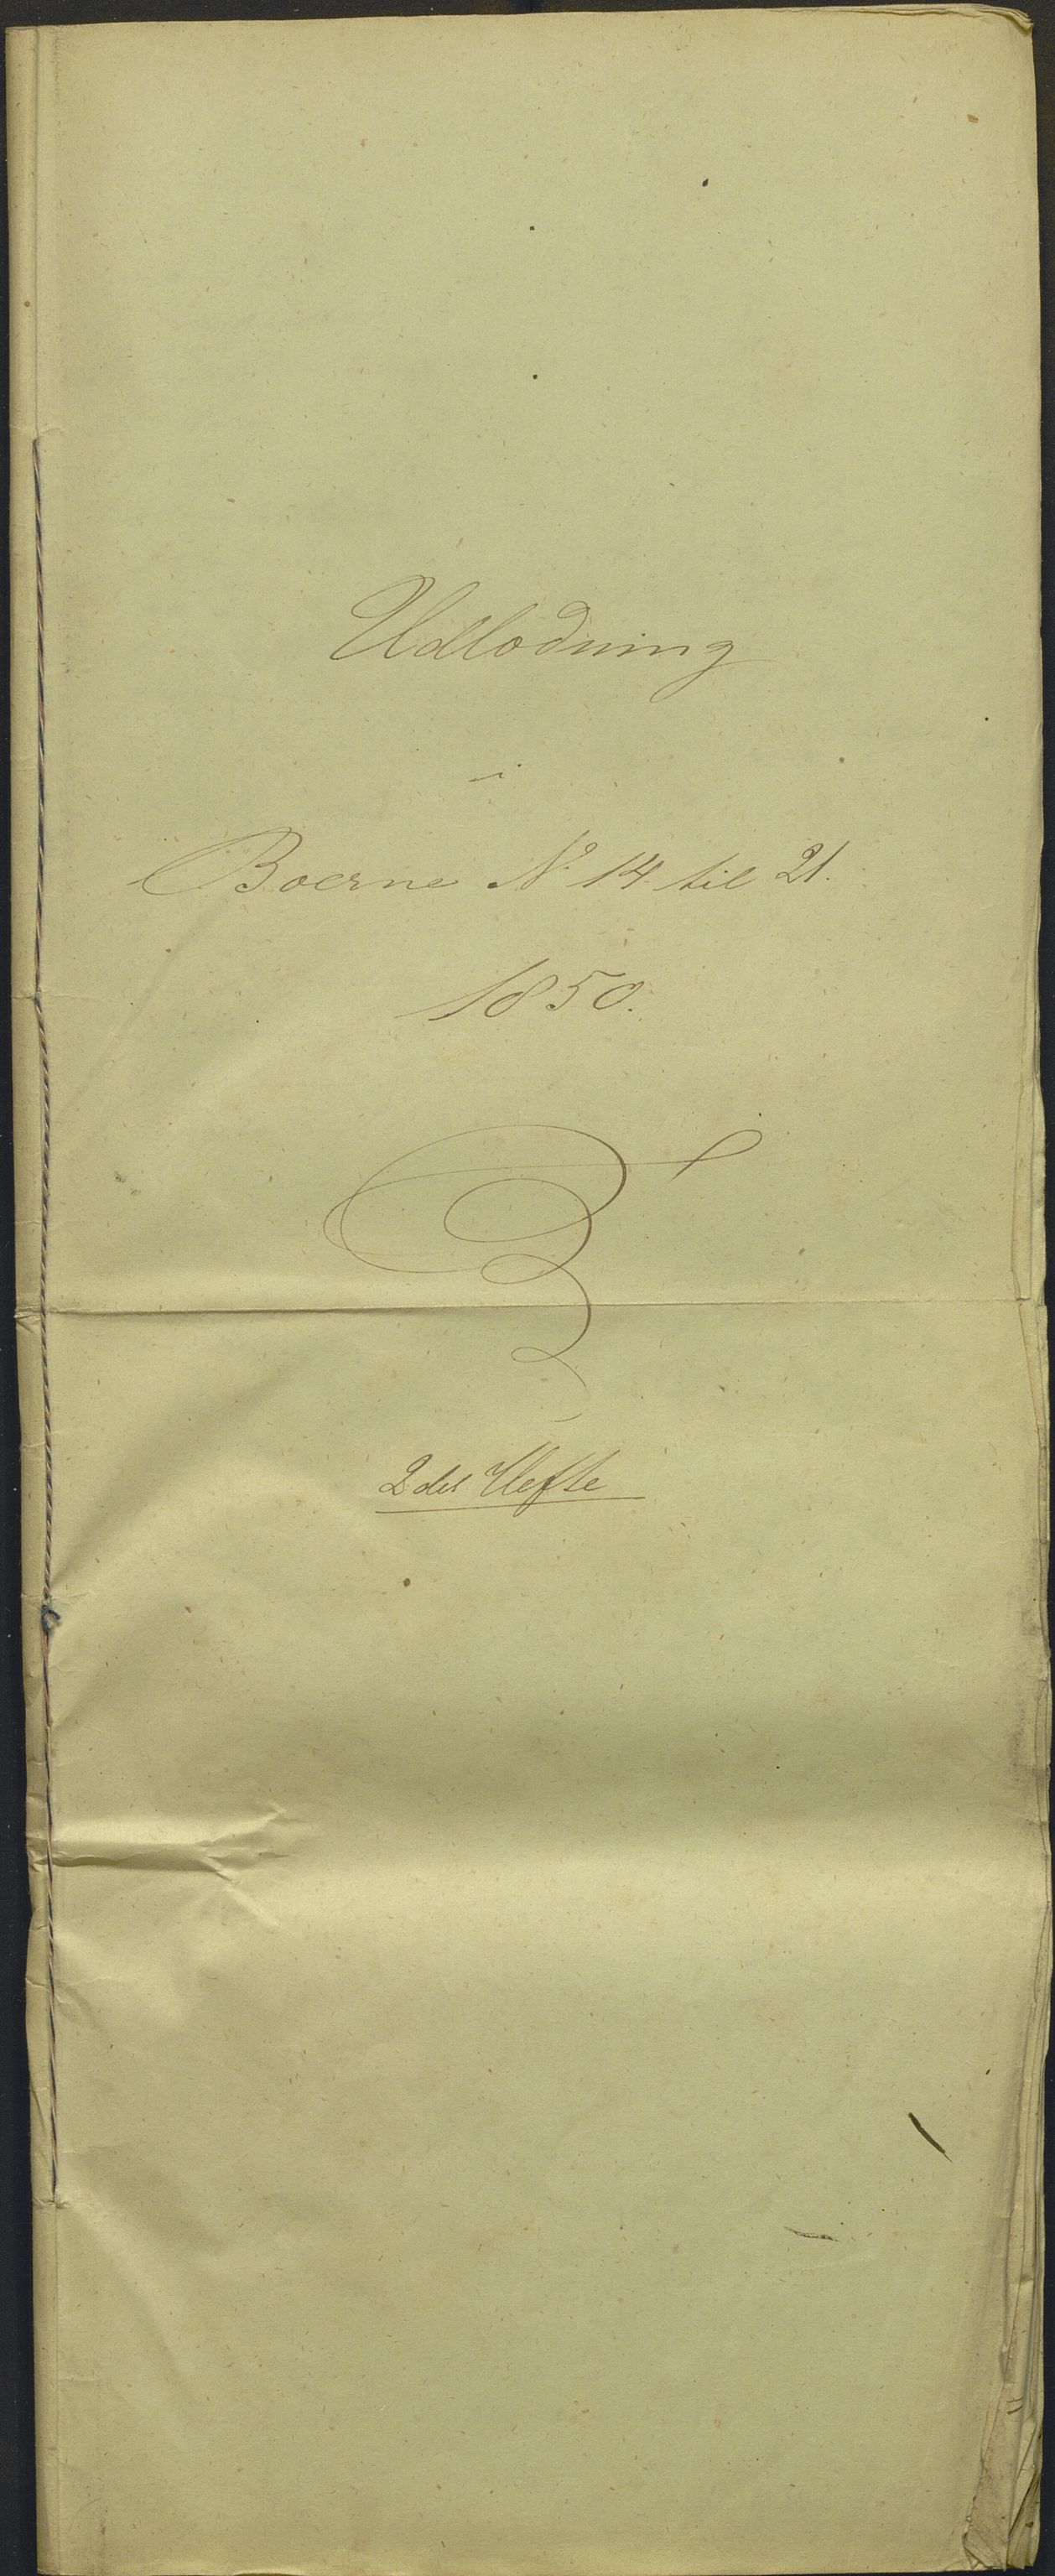 Udlodning
i
Boerne No 14 til 21.
1850.
2det Hefte